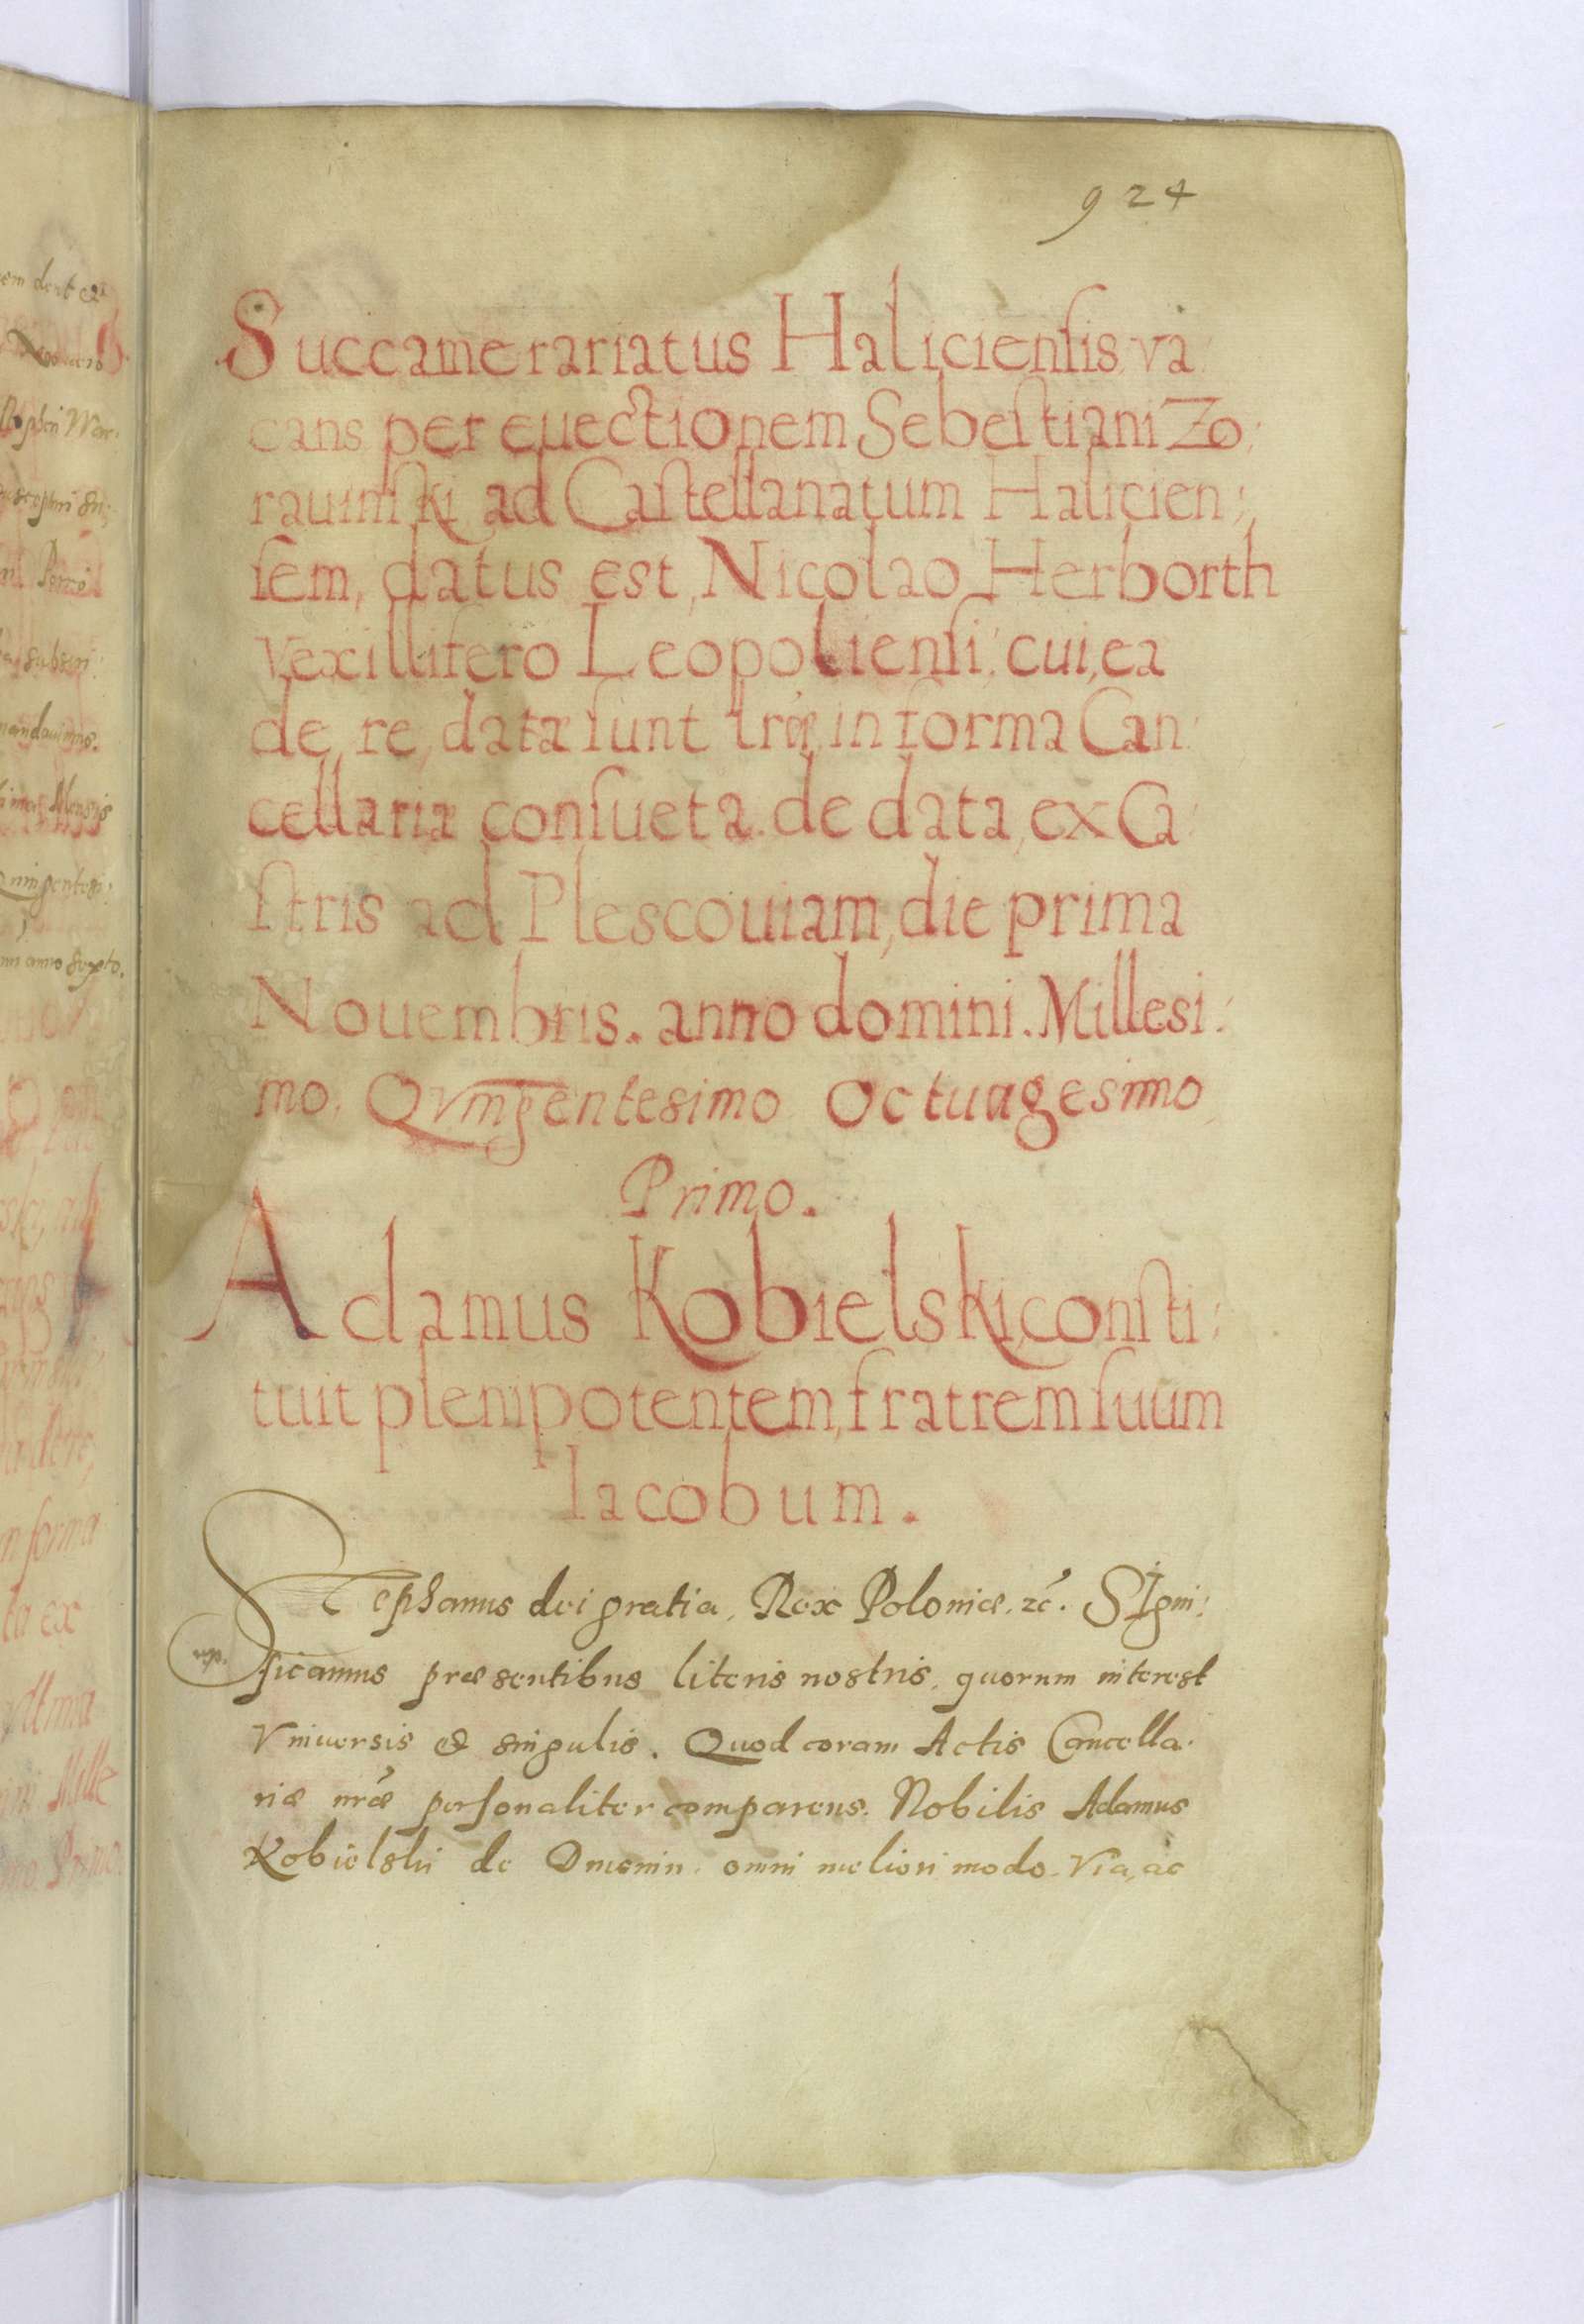 924
Succamerariatus Haliciensis va:
cans per euectionem Sebestiani Zo:
rauinski ad Castellanatum Halicien:
sem, datus est, Nicolao Herborth
Vexillifero Leopoliensi: cui, ea
de re, datæ sunt lræ, in forma Can:
cellariæ consueta. de data, ex Ca:
stris ad Plescouiam, die prima
Nouembris. anno domini. Millesi:
mo. Qvingentesimo Octuagesimo
Primo.
Adamus Kobielski, consti:
tuit plenipotentem, fratrem suum
Iacobum.
Stephanus dei gratia, Rex Poloniæ. zc. SIgni:
ficamus præsentibus literis nostris, quorum interest
Vniuersis et singulis. Quod coram Actis Cancella:
riæ nræ personaliter comparens. Nobilis Adamus
Kobielski de Dmenin. omni meliori modo. Via, ac